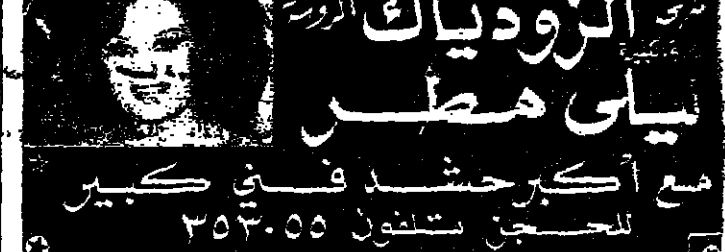 الزودياك الروشة
ليلى مطر
مع أكبر حشد فني كبير
للحجز تلفون ٣٥٣٠٥٥